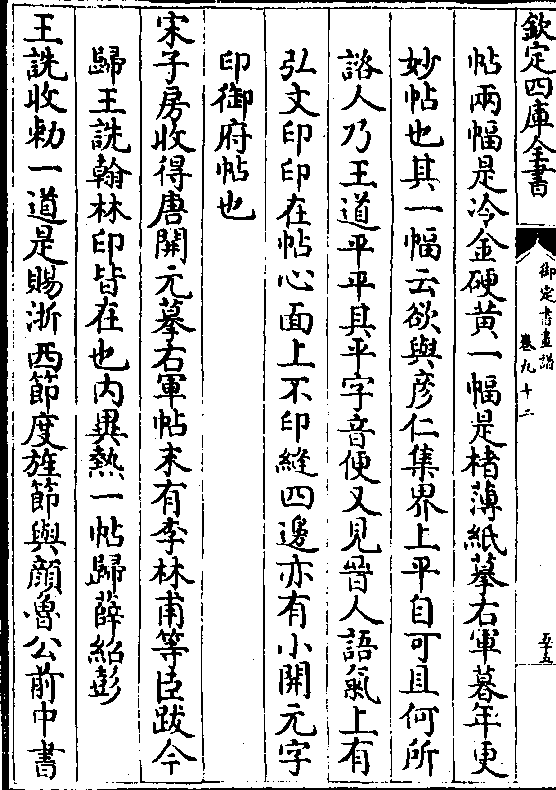 欽定四庫全書
御定書畫譜
卷九十二
五十五
帖兩幅是冷金硬黃一幅是楮薄紙摹右軍暮年更
妙帖也其一幅云欲與彥仁集界上平自可且何所
諮人乃王道平平其平字音便又見晉人語氣上有
弘文印印在帖心面上不印縫四邊亦有小開元字
印御府帖也
宋子房收得唐開元摹右軍帖末有李林甫等臣跋今
歸王詵翰林印皆在也内異熱一帖歸薛紹彭
王詵收勅一道是賜浙西節度旌節與顔魯公前中書